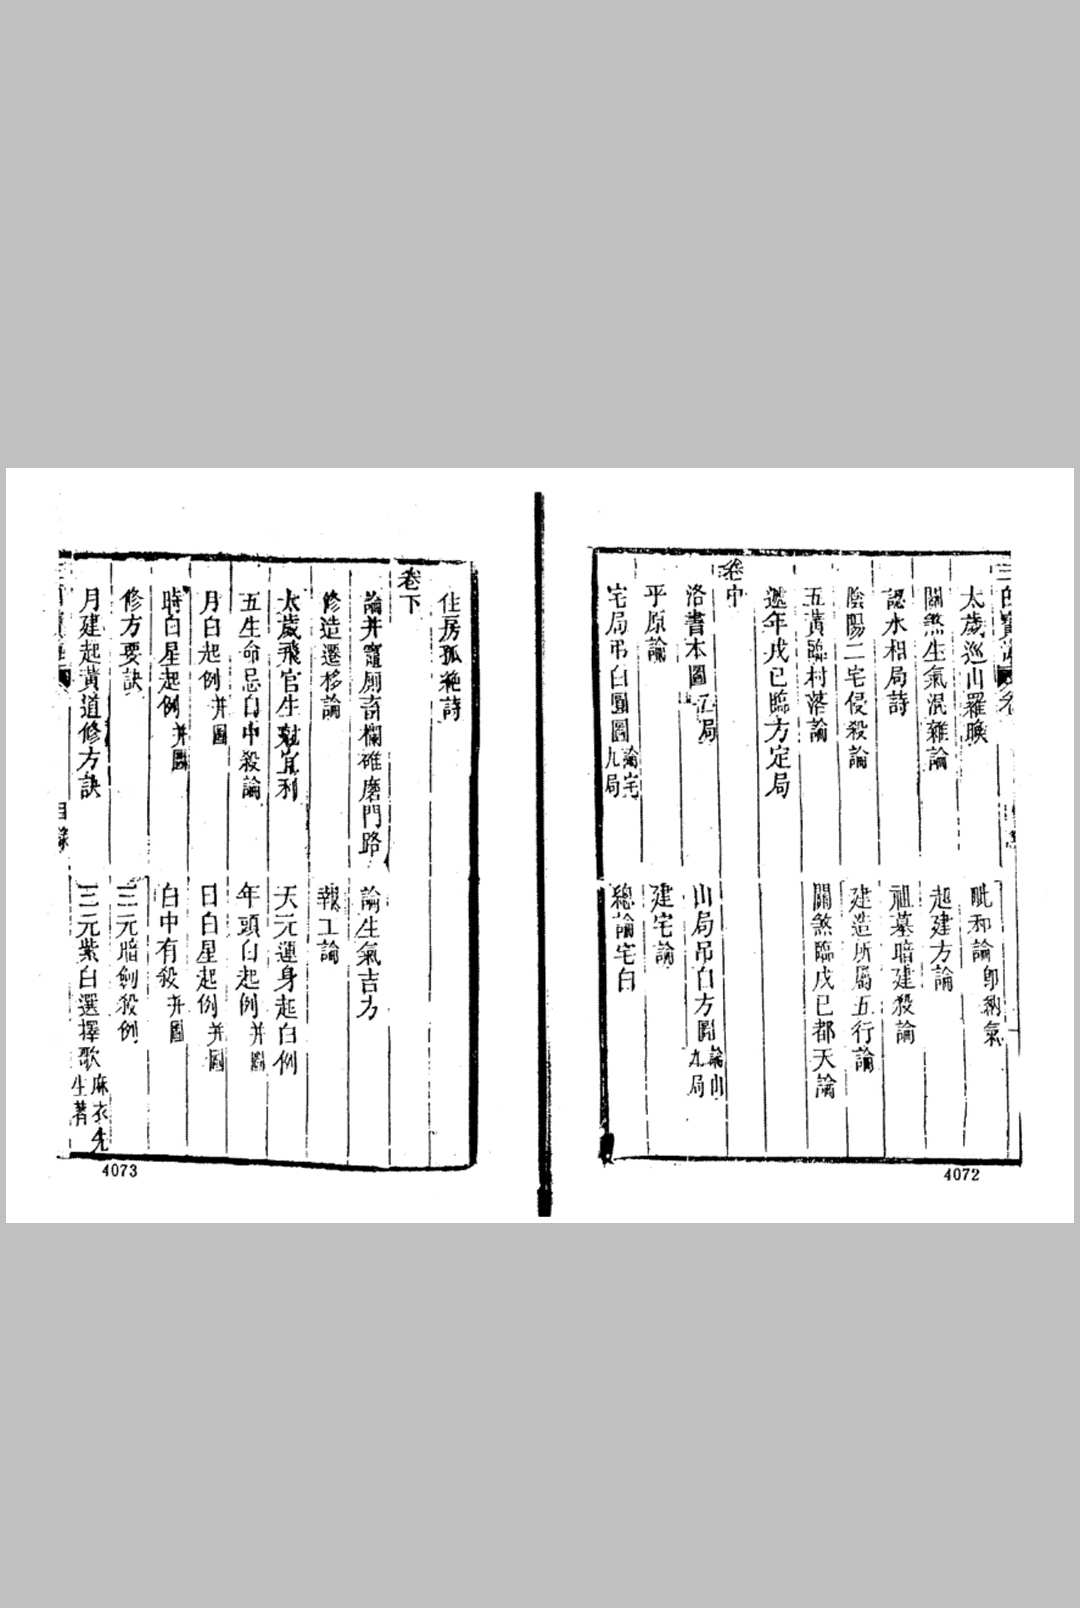 太歲巡山羅睺
毗和論 卽納氣
關煞生氣混雜論
起建方論
認水相局詩
祖墓暗建殺論
陰陽二宅侵殺論
建造所屬五行論
五黃臨村落論
關煞臨戊已都天論
遞年戊已臨方定局
卷中
洛書本圖 局
山局吊白方圖 論山九局
平原論
建宅論
宅局吊白圓圖 論宅九局
總論宅白
4072
住房孤絶詩
卷下
論井竈厠畜欄碓磨門路
論生氣吉方
修造遷移論
報工論
太歲飛宮生尅宜利
天元運身起白例
五生命忌白中殺論
年頭白起例 并圖
月白起例 并圖
日白星起例 并圖
時白星起例 并圖
白中有殺 并圖
修方要訣
三元暗劍殺例
月建起黃道修方訣
三元紫白選擇歌 麻衣先生著
目錄
4073